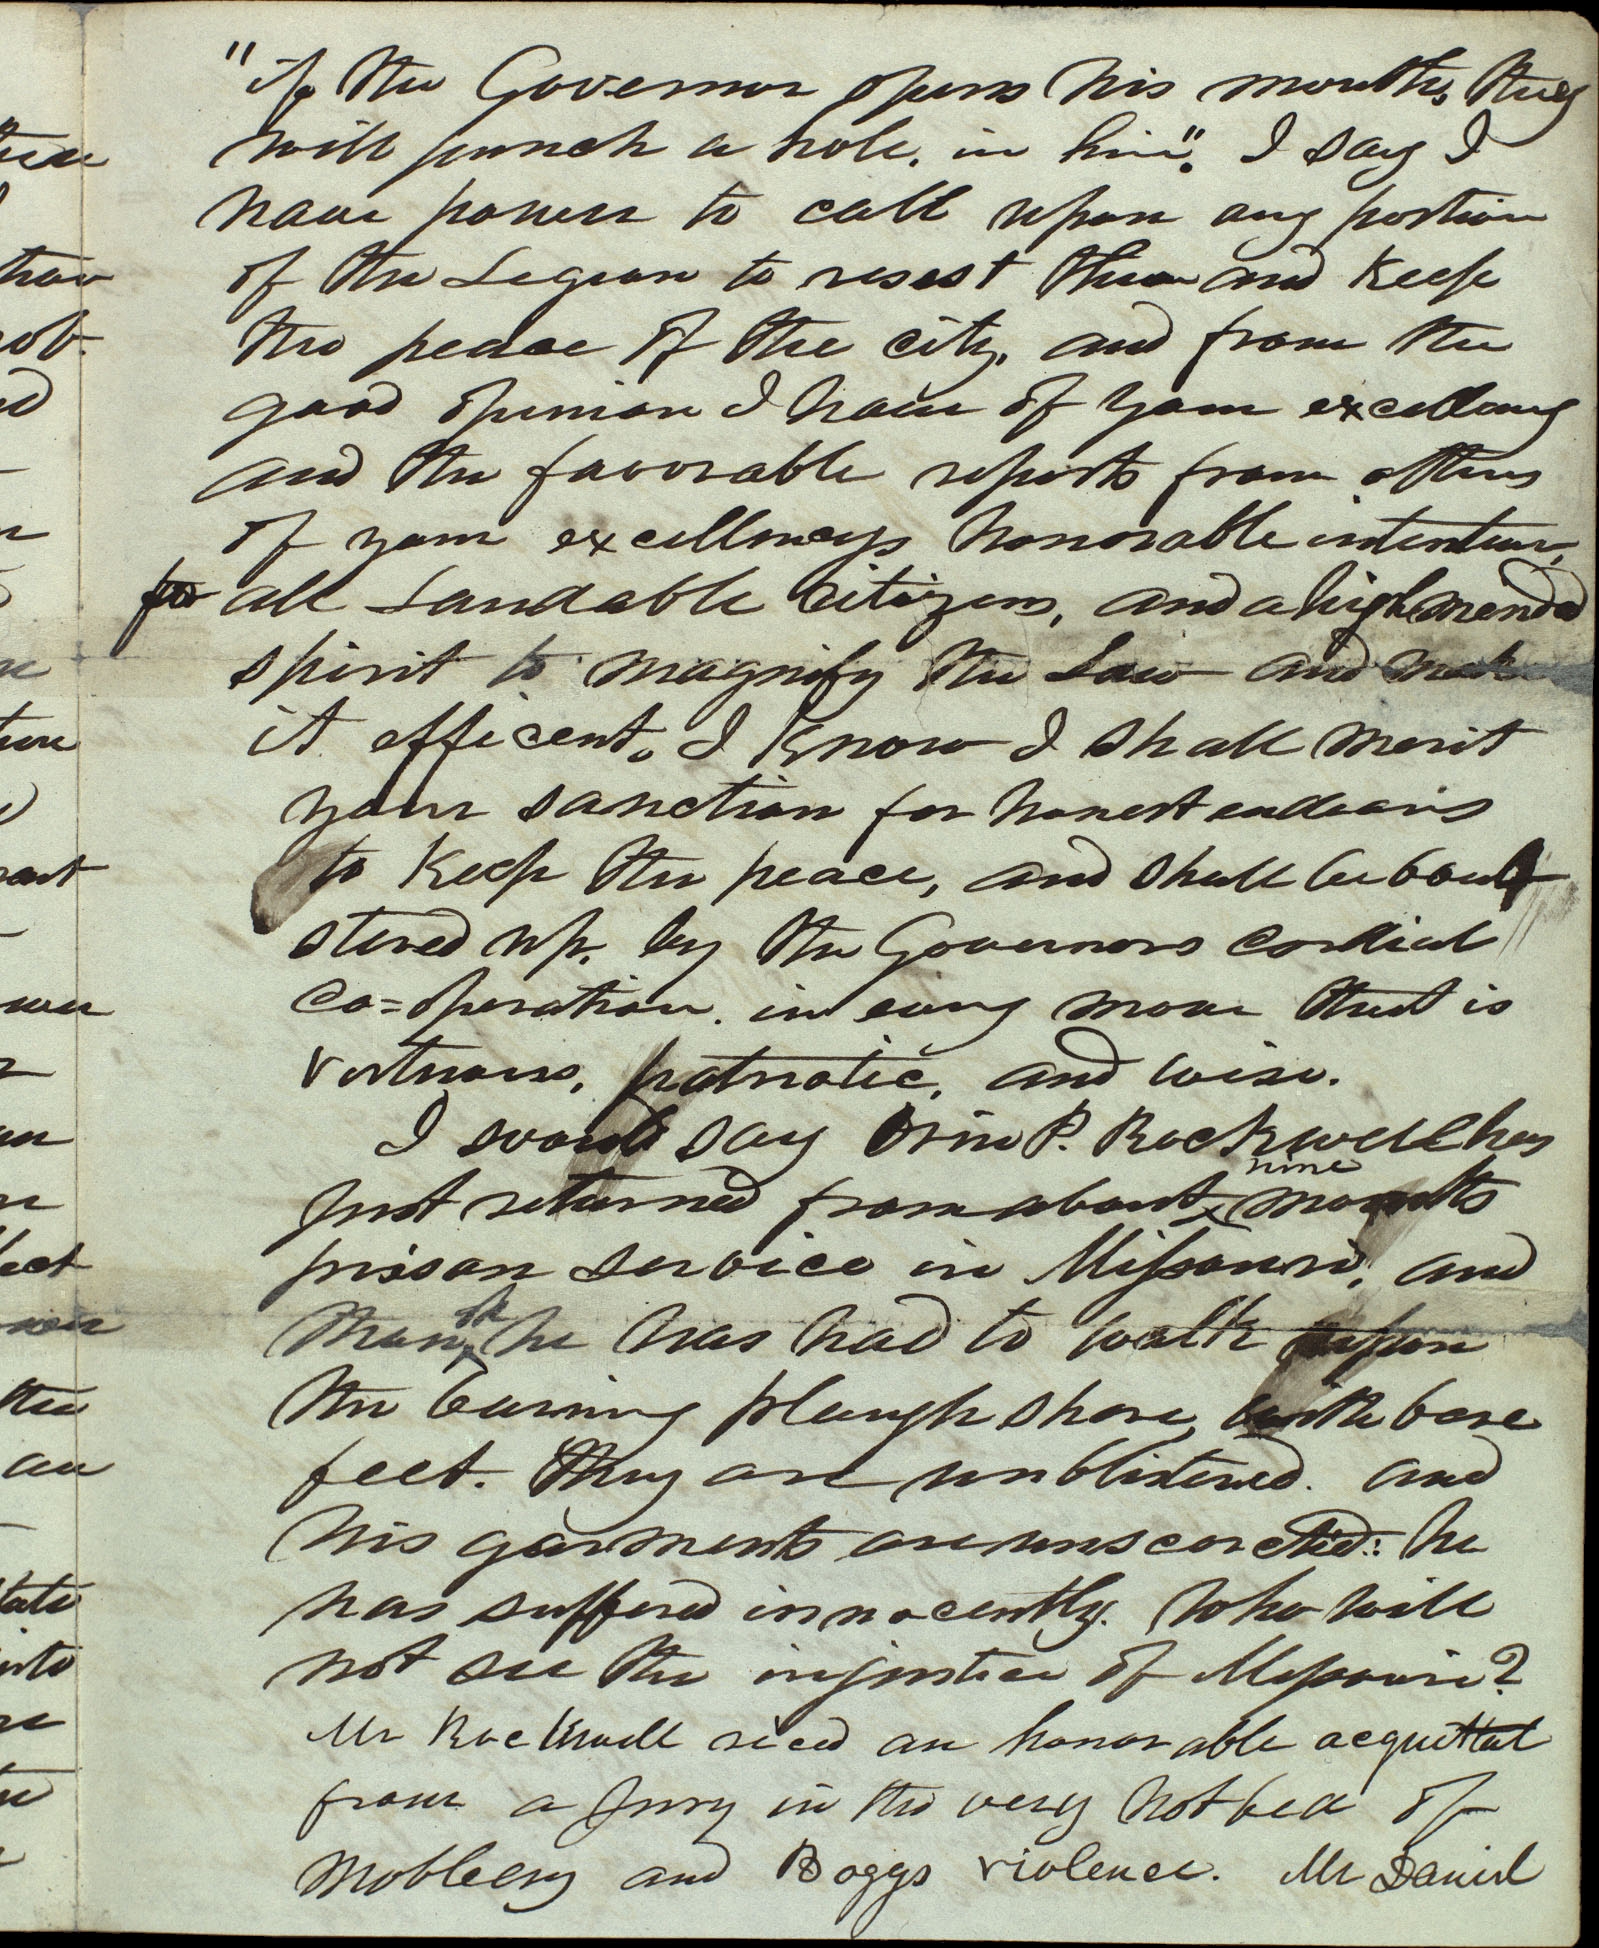 "if the Governor opens his mouth, they
will punch a hole, in him". I say I
have power to call upon any portion
of the Legion to resest them and keep
the peace of the city, and from the
good opinion I have of your excellency
and the favorable reports from others
of your excellencys honorable intentions,
for all laudable citizens, and a high minded
spirit to magnify the law and make
it efficent, I know I shall merit
your sanction for honest endeavors
to keep the peace, and shall be boul
stered up, by the Governors cordial
co=operation. in every move that is
virtuous, patriotic, and wise.
I would say Orin P. Rockwell has
just returned from about nine months
prison service in Missouri, and
though he has had to walk upon
the burning plough share, with bare
feet. they are unblistered. and
his garments are unscorched: he
has suffered innocently. who will
not see the injustice of Missouri?
Mr Rockwell reced an honorable acquittal
from a Jury in the very hot bed of
mobbery and Boggs violence. Mr Daniel